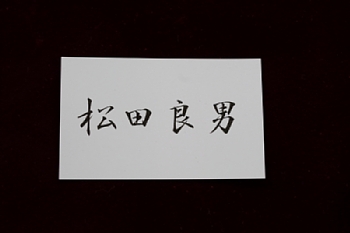 松田良男